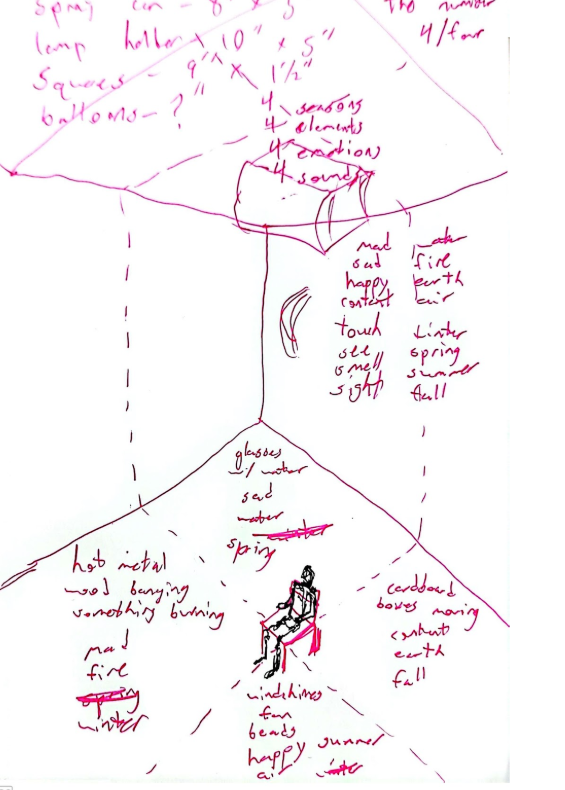 spray can - 8" x 3
lamp holder 10" x 5"
Squares - 9" x 1½"
balloons - ?
The number
4/four
4 seasons
4 elements
4 emotions
4 sounds
mad
sad
happy
content
water
fire
earth
air
touch
see
smell
sight
winter
spring
summer
fall
glasses
w/ water
sad
water
spring winter
hot metal
wood banging
something burning
mad
fire
spring
winter
cardboard
boxes moving
content
earth
fall
windchimes
fan
beads
happy summer
air winter